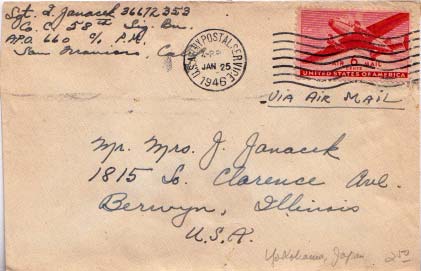 Sgt. L. Janacek 36672353
Co. C. 58th Sig. Bn.
A.P.O. 660 c/o P.M.
San Francisco, Cal
U.S. ARMY POSTAL SERVICE
JAN 25
1946
AIR MAIL
6
CENTS
UNITED STATES OF AMERICA
VIA AIR MAIL
Mr. Mrs. J. Janacek
1815 So. Clarence Ave.
Berwyn, Illinois
U.S.A.
Yokohama, Japan
2.50